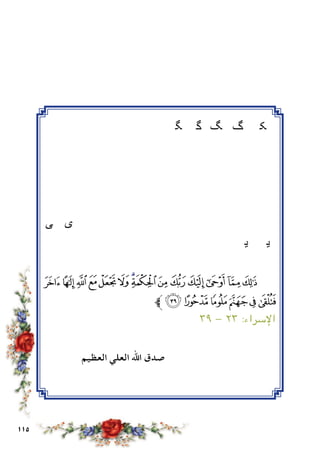 ﮔ ﮓ ﮕ ﮒ ﮐ
ى ى
ﯾ ﯾ
ذَٰلِكَ مِمَّآ أَوْحَىٰٓ إِلَيْكَ رَبُّكَ مِنَ ٱلْحِكْمَةِ ۗ وَلَا تَجْعَلْ مَعَ ٱللَّهِ إِلَٰهًا ءَاخَرَ
فَتُلْقَىٰ فِى جَهَنَّمَ مَلُومًا مَّدْحُورًا ﴿٣٩﴾ ﴾
الإسراء: ٢٣ – ٣٩
صدق الله العلي العظيم
١١٥